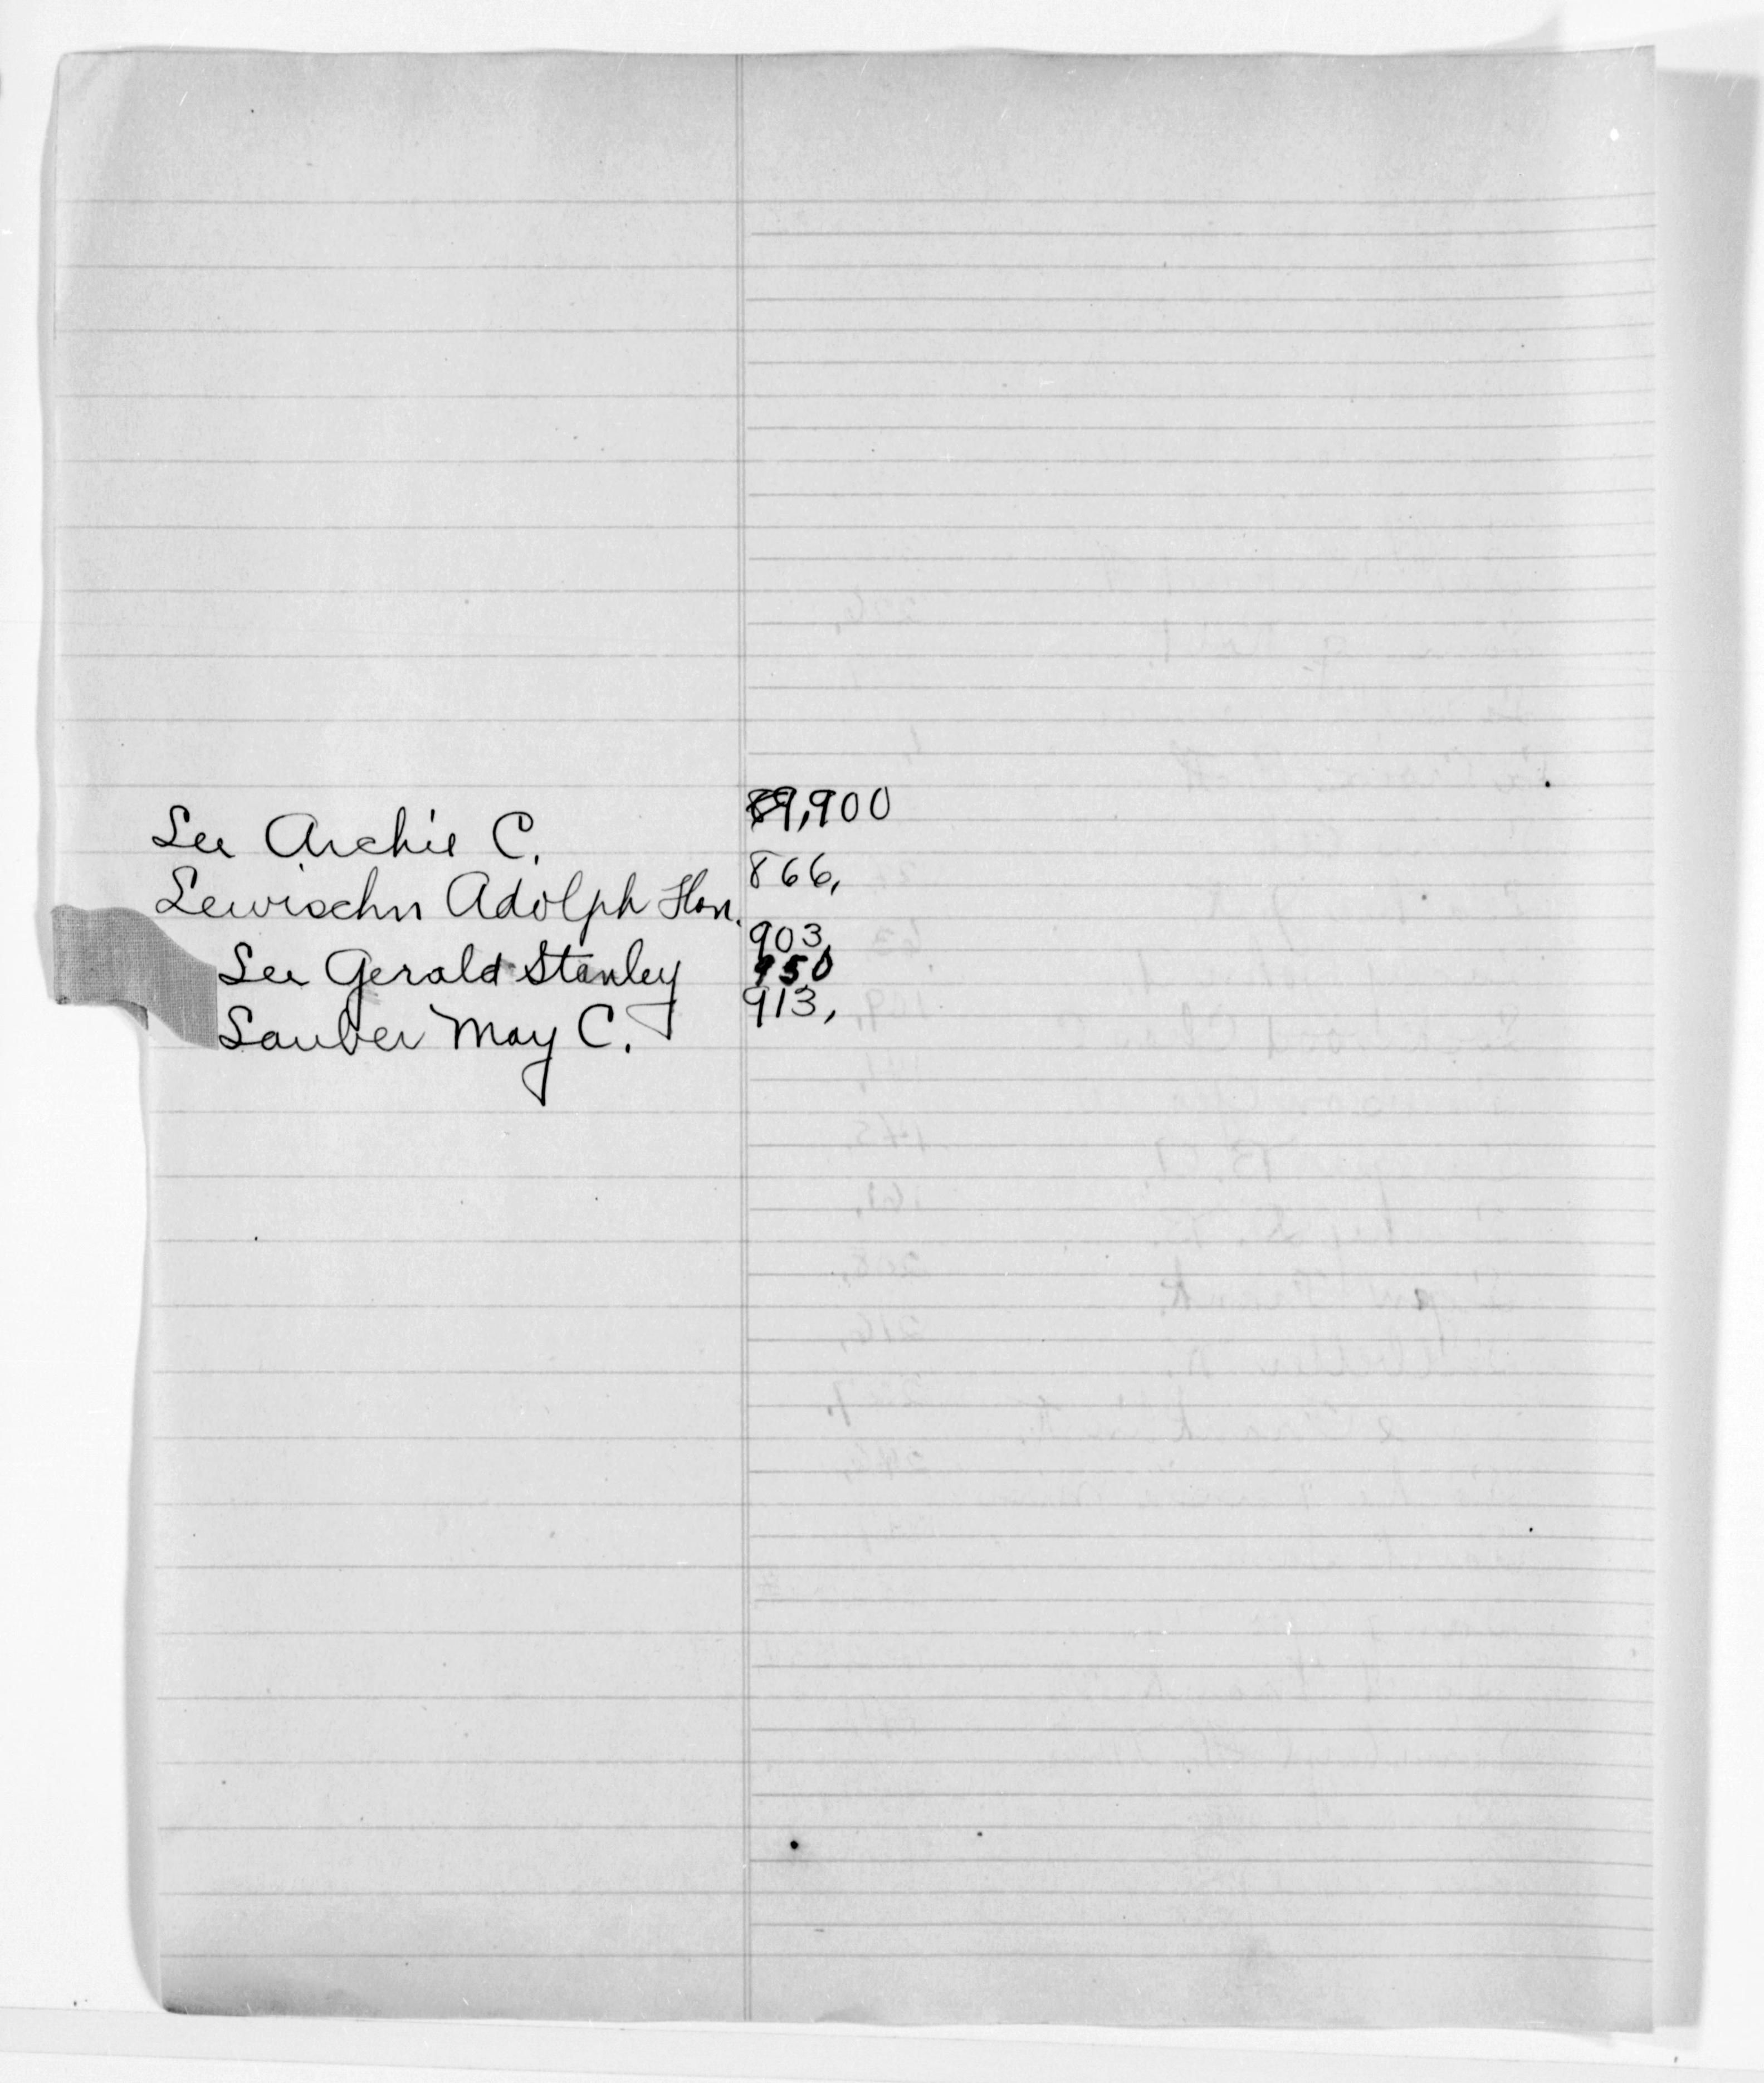 Lee Archie C. 89,900
Lewisohn Adolph Hon. 866,
Lee Gerald Stanley 903, 950
Lauber May C. 913,